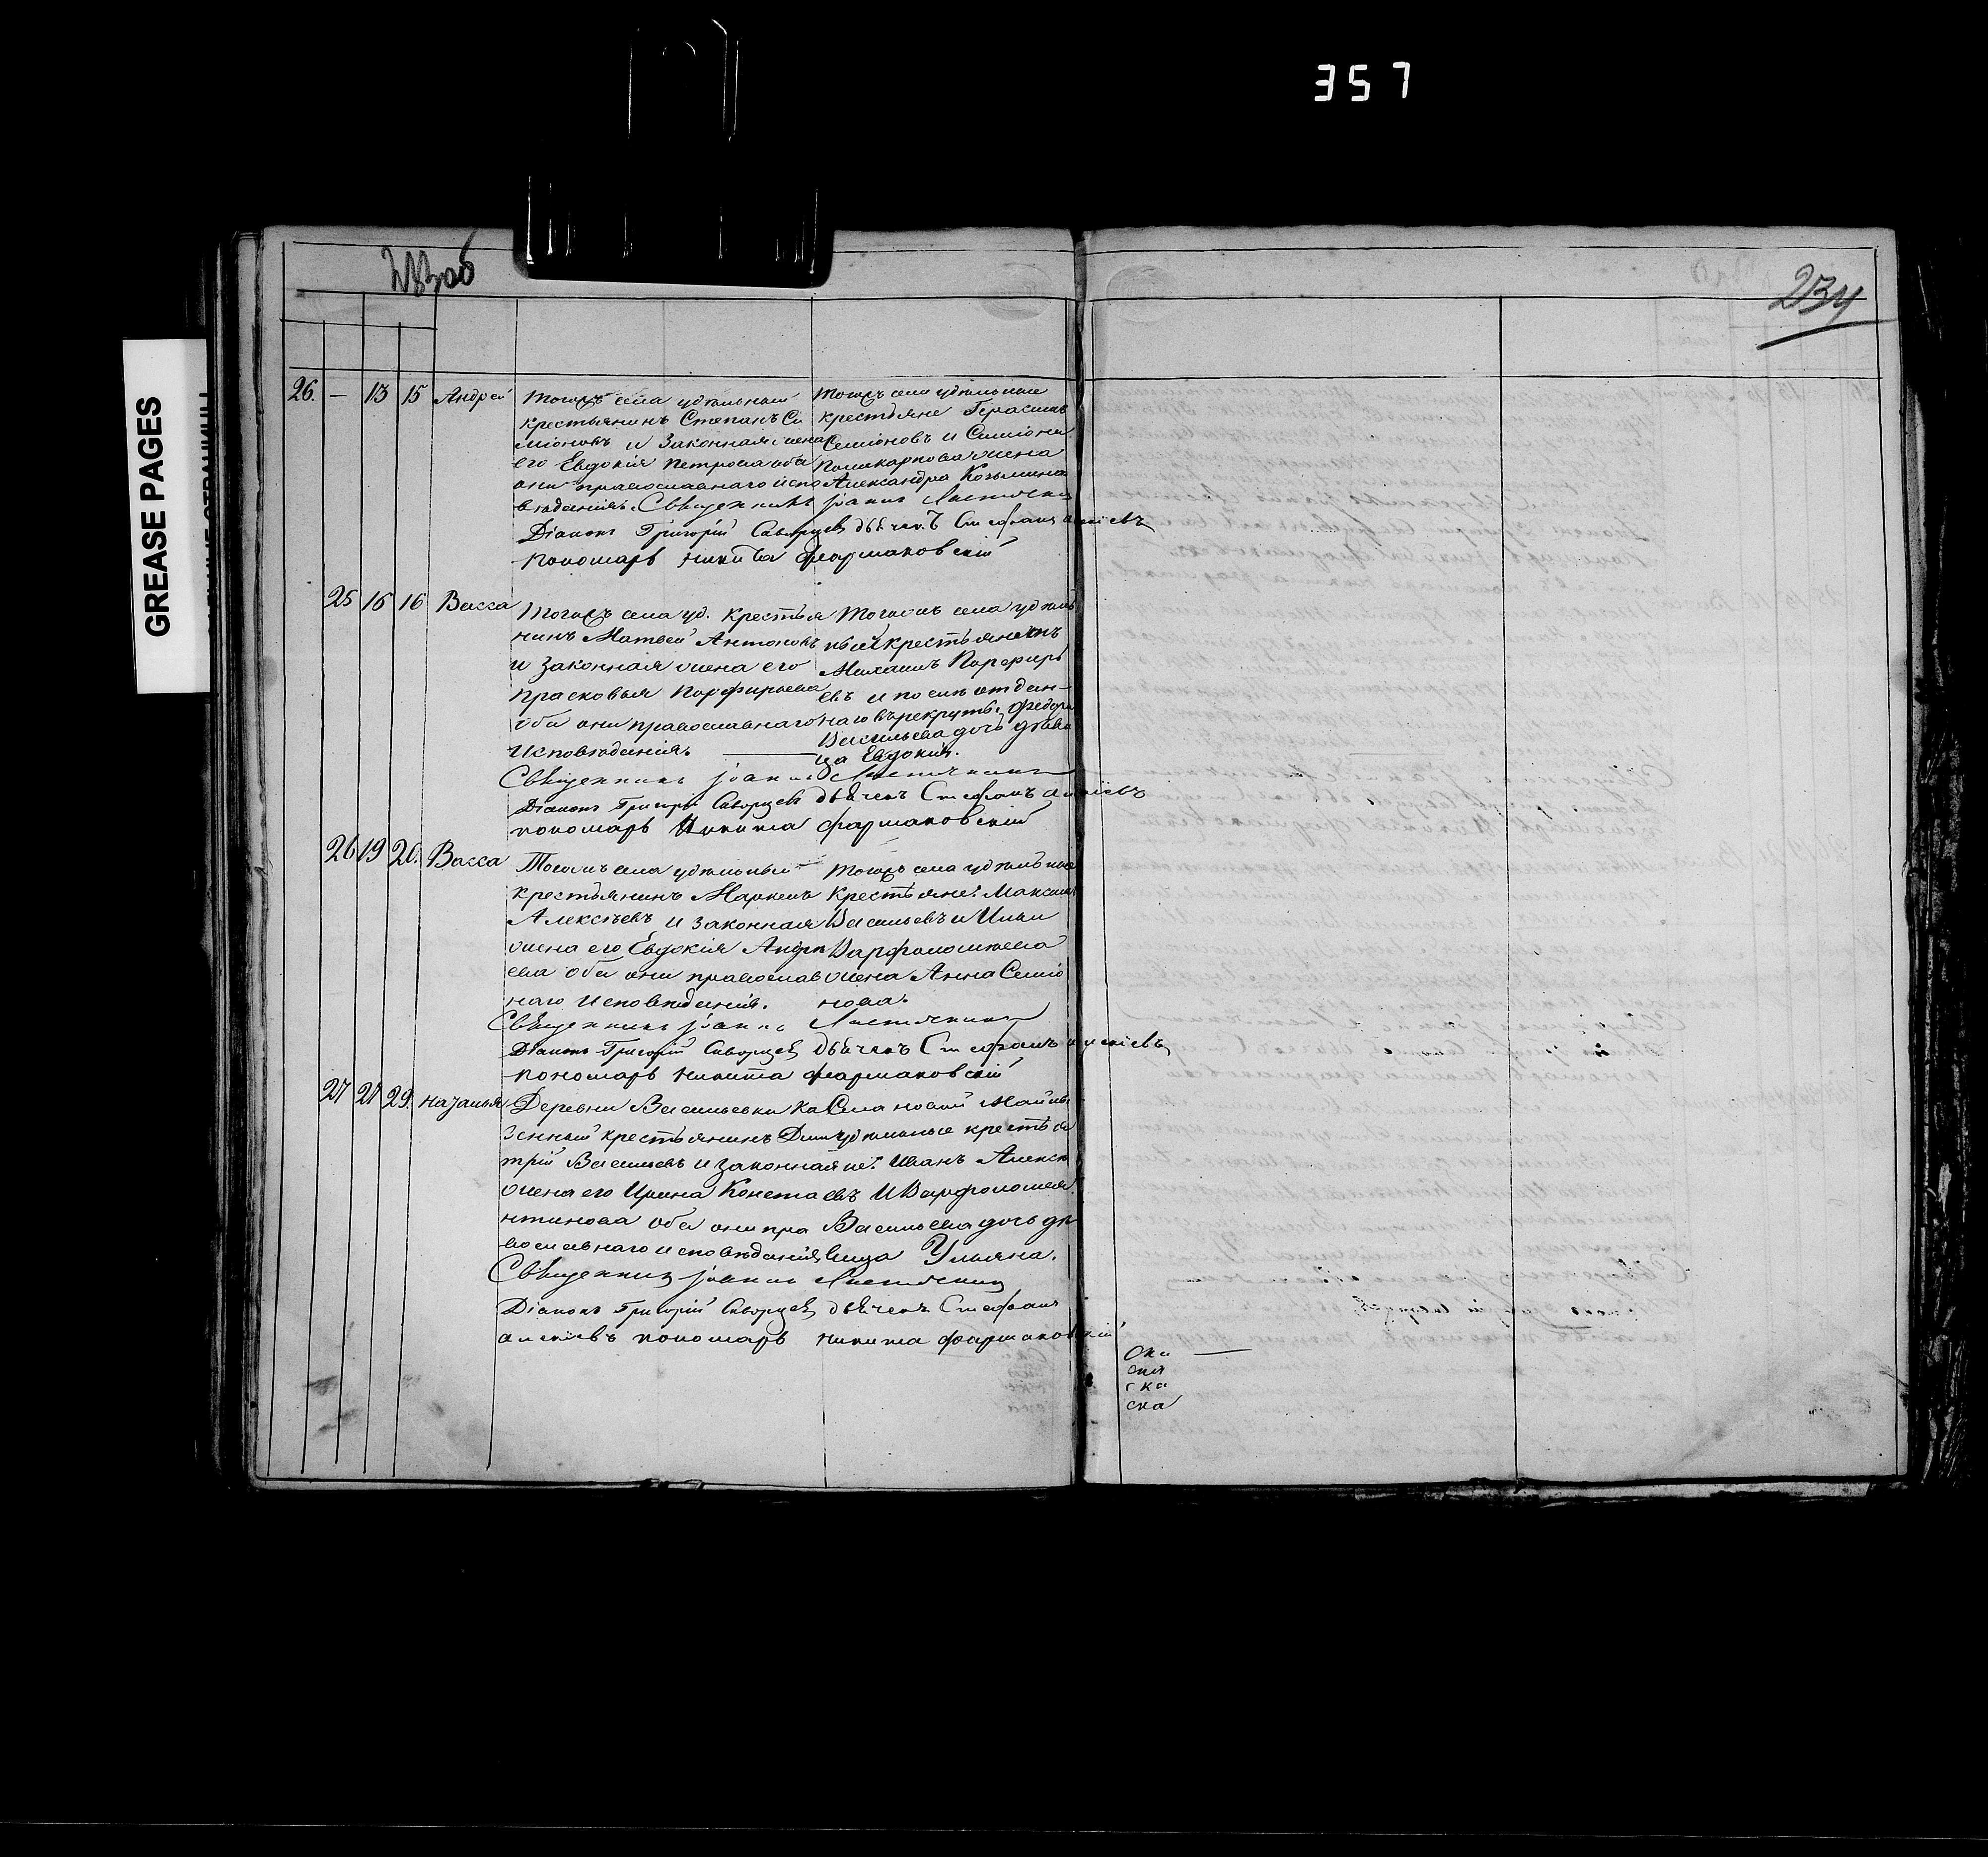 357
GREASE PAGES
233 об
234
26. — 13 15 Андрей
Тогожъ села удѣльный
крестьянинъ Степанъ Си
міоновъ и законная жена
его Евдокія Петрова оба
они православнаго испо
вѣданія.
Тогожъ села удѣльные
крестьяне Герасимъ
Семіоновъ и Симіона
Поликарпова жена
Александра Козьмина
Священникъ Іоаннъ
Діаконъ Григорій Скворцевъ дьячекъ Стефанъ Алексіевъ
пономарь Никита Фармаковскій
25 16 16 Васса
Тогожъ села уд. крестья
нинъ Матвей Антоновъ
и законная жена его
Прасковья Порфирьева
оба они православнаго
исповѣданія.
Тогожъ села удѣль
ный крестьянинъ
Михаилъ Порфирь
евъ и после отдан-
наго въ рекруты Федора
Васильева дочь дѣви
ца Евдокія.
Священникъ Іоаннъ
Діаконъ Григорій Скворцевъ дьячекъ Стефанъ Алексіевъ
пономарь Никита Фармаковскій
26 19 20. Васса
Тогожъ села удѣльный
крестьянинъ Маркелъ
Алексѣевъ и законная
жена его Евдокія Андре
ева оба они православ
наго исповѣданія.
Тогожъ села удѣльные
крестьяне: Максимъ
Васильевъ и Ильи
Варфоломѣева
жена Анна Семіо
нова.
Священникъ Іоаннъ
Діаконъ Григорій Скворцевъ дьячекъ Стефанъ Алексіевъ
пономарь Никита Фармаковскій
27 27 29. Наталья
Деревни Васильевки ка
зенный крестьянинъ Дими
трій Васильевъ и законная
жена его Ирина Конста
нтинова оба они пра
вославнаго исповѣданія
Села Новой Майны
удѣльные крестья
не: Иванъ Алексѣ
евъ и Варфоломея
Васильева дочь дѣ
вица Ульяна.
Священникъ Іоаннъ
Діаконъ Григорій Скворцевъ дьячекъ Стефанъ
Алексіевъ пономарь Никита Фармаковскій
ска